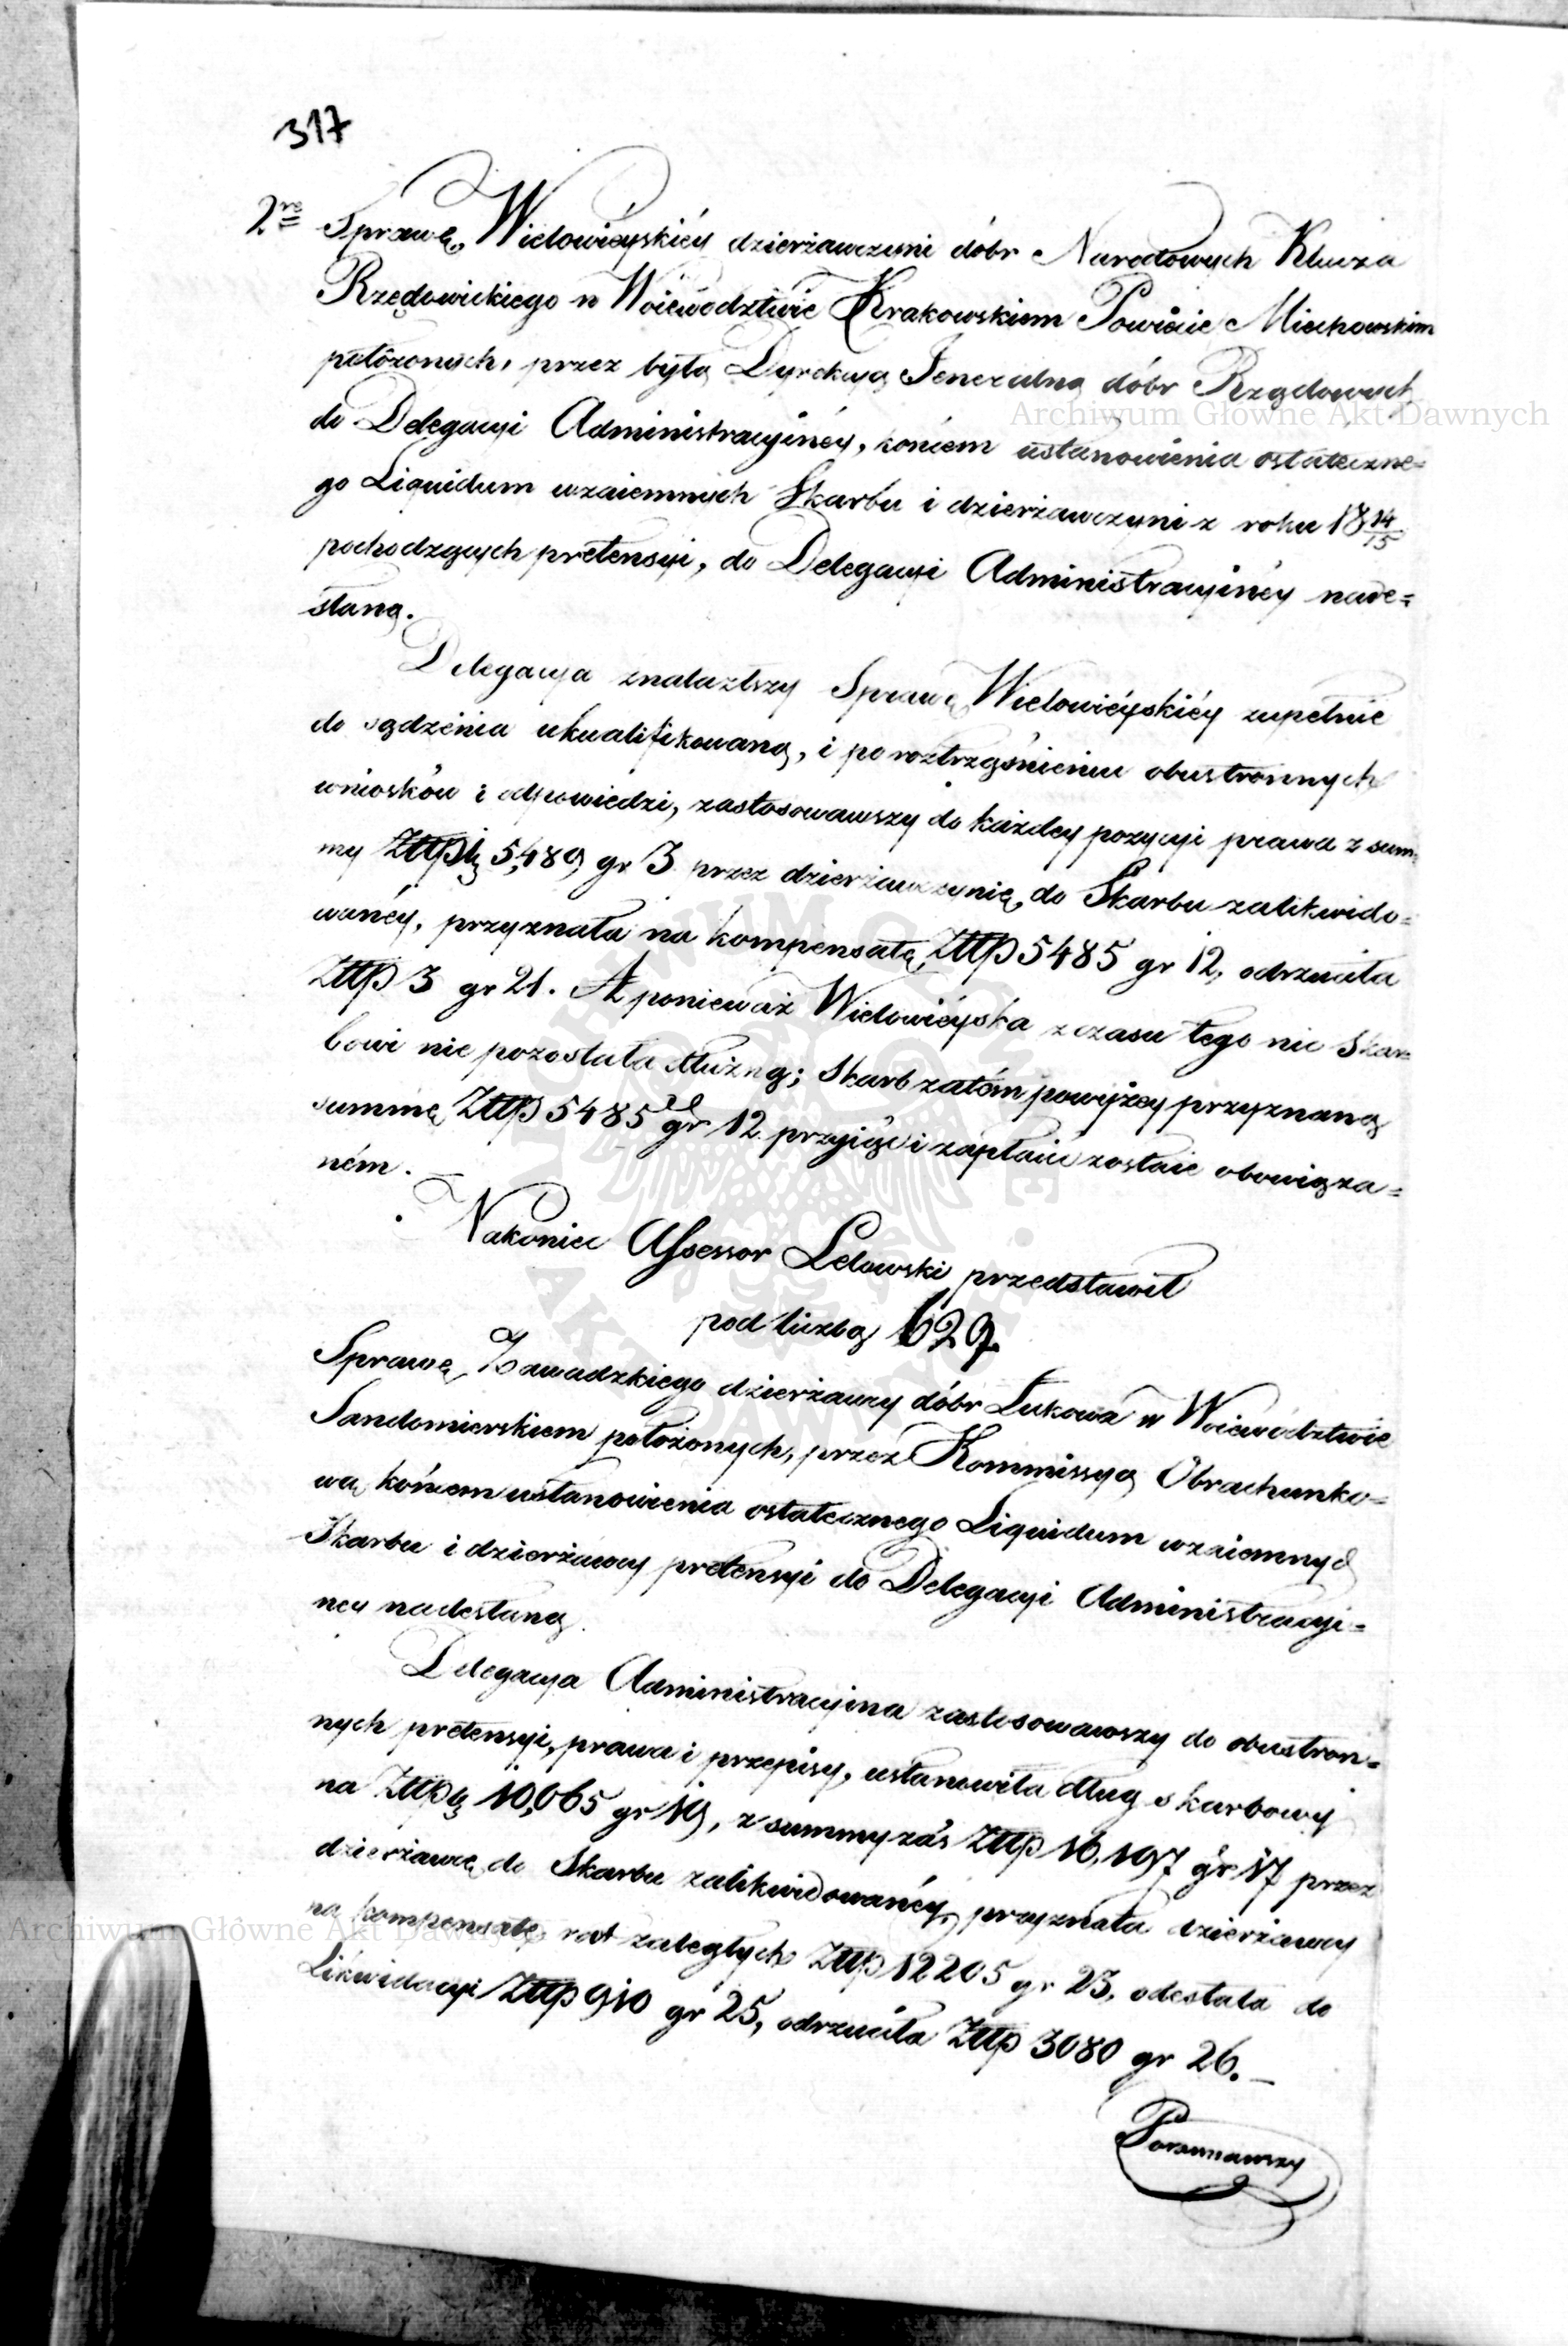 317
2re Sprawę Wielowiéyskiéy dzierżawczyni dóbr Narodowych Klucza
Rzędowickiego w Woiewództwie Krakowskiem Powiecie Miechowskim
położonych, przez byłą Dyrekcyą Jeneralną dóbr Rządowych
do Delegacyi Administracyinéy, końcem ustanowienia ostateczne=
go Liquidum wzaiemnych Skarbu i dzierżawczyni z roku 1814/15
pochodzących pretensyi, do Delegacyi Administracyinéy nade=
słaną.
Delegacya znalazłszy Sprawę Wielowiéyskiéy zupełnie
do sądzenia ukwalifikowaną, i po roztrząśnieniu obustronnych
wniosków i odpowiedzi, zastosowawszy do każdey pozycyi prawa z sum=
my Złłp. 5,489 gr 3 przez dzierżawczynię do Skarbu zalikwido=
wanéy, przyznała na kompensatę Złłp 5485 gr 12, odrzuciła
Złłp 3 gr 21. A ponieważ Wielowiéyska z czasu tego nic Skar=
bowi nie pozostała dłużną; Skarb zatém powyżey przyznaną
summę Złłp 5485 gr 12 przyiąć i zapłacić zostaie obowiąza=
ném.
Nakoniec Assessor Lelowski przedstawił
pod liczbą 629
Sprawę Zawadzkiego dzierżawcy dóbr Łukowa w Woiewództwie
Sandomierskiem położonych, przez Kommissyą Obrachunko=
wą końcem ustanowienia ostatecznego Liquidum wzaiemnych
Skarbu i dzierżawcy pretensyi do Delegacyi Administracyi=
ney nadesłaną.
Delegacya Administracyina zastosowawszy do obustron=
nych pretensyi, prawa i przepisy, ustanowiła dług skarbowy
na Złłp 10,065 gr 19, z summy zaś Złłp 16,197 gr 17 przez
dzierżawcę do Skarbu zalikwidowanéy, przyznała dzierżawcy
na kompensatę rat zaległych Złłp 12205 gr 25, odesłała do
Likwidacyi Złłp 910 gr 25, odrzuciła Złłp 3080 gr 26.
Porównawszy
Archiwum Główne Akt Dawnych
Archiwum Główne Akt Dawnych
ARCHIWUM GŁÓWNE AKT DAWNYCH